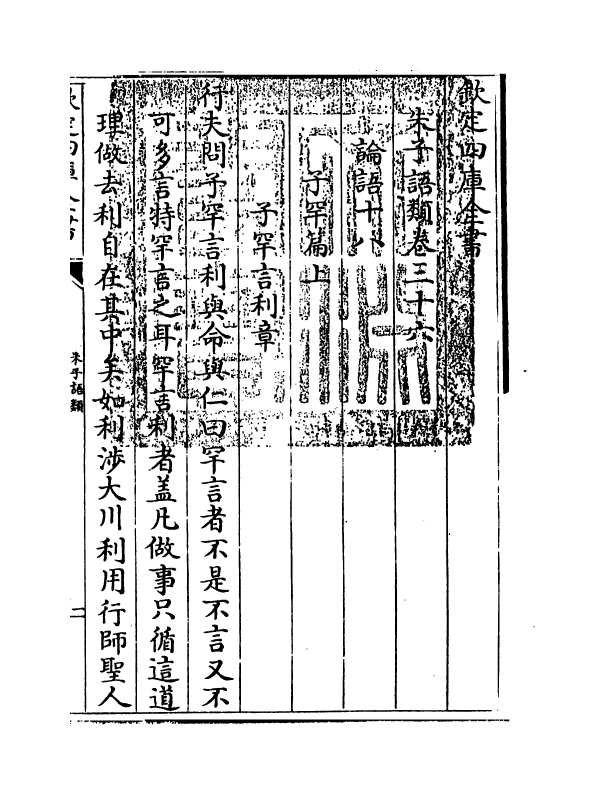 欽定四庫全書
朱子語類卷三十六
論語十八
子罕篇上
子罕言利章
行夫問子罕言利與命與仁曰罕言者不是不言又不
可多言特罕言之耳罕言利者蓋凡做事只循這道
理做去利自在其中矣如利渉大川利用行師聖人
欽定四庫全書
朱子語類